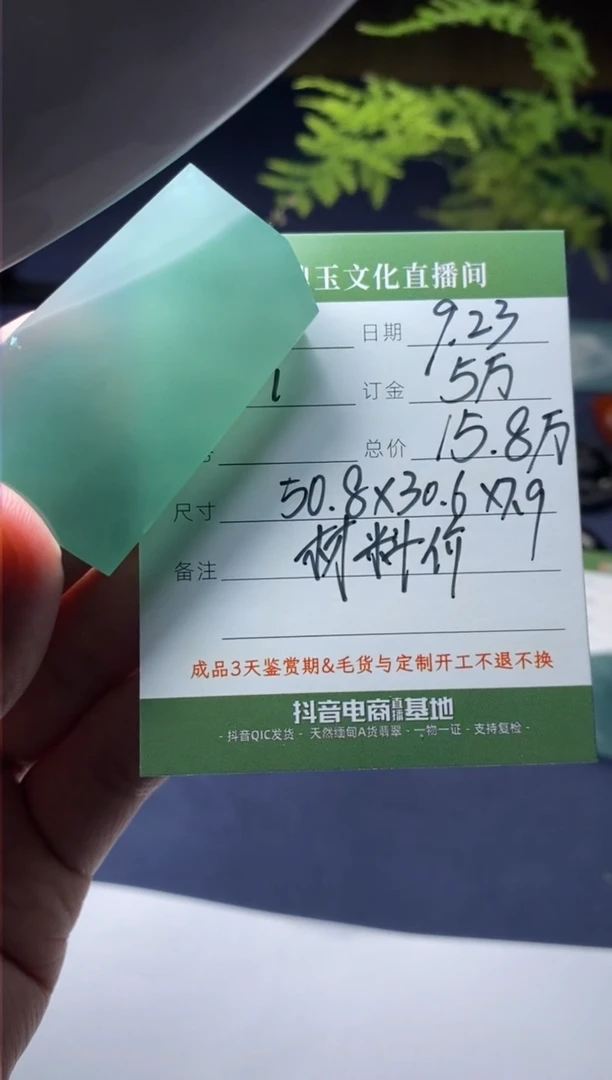 玉文化直播间
日期 9.23
1 订金 5万
总价 15.8万
尺寸 50.8×30.6×7.9
备注 材料价
成品3天鉴赏期&毛货与定制开工不退不换
抖音电商直播基地
- 抖音QIC发货 - 天然缅甸A货翡翠 - 一物一证 - 支持复检 -